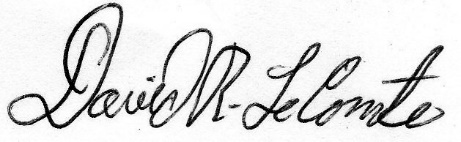 David R. LeComte